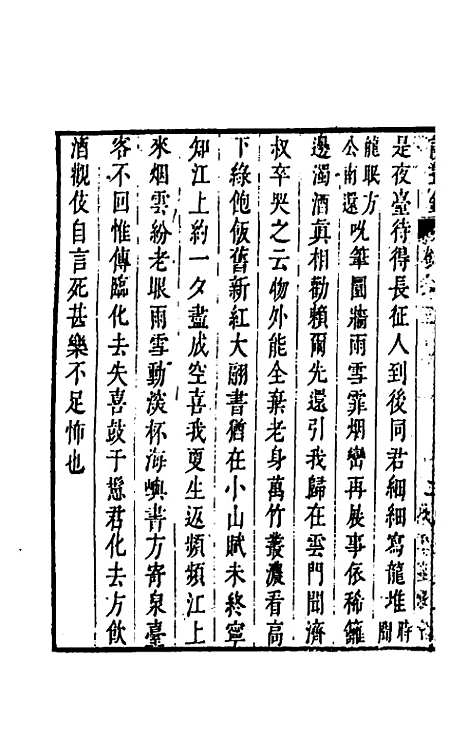 是夜臺待得長征人到後同君細細寫龍堆時聞
龍眠方公南還
吮筆圖牆雨雪霏烟巒再展事依稀籬
邊濁酒眞相勸賴爾先還引我歸在雲門聞濟
叔卒哭之云物外能全棄老身萬竹叢濃看高
下綠飽飯舊新紅大翮書猶在小山賦未終寧
知江上約一夕盡成空喜我更生返頻頻江上
來烟雲紛老眼雨雪動淡杯海嶼書方寄泉臺
客不回惟傳臨化去失喜鼓于腮君化去方飲
酒觀伎自言死甚樂不足怖也